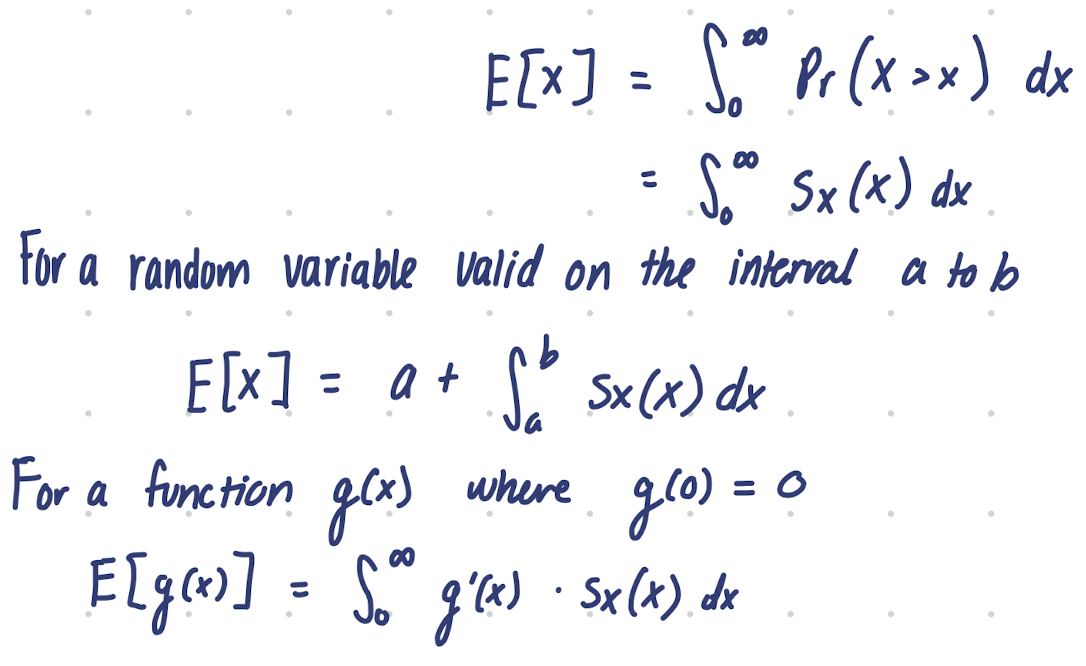 E[x] = ∫₀^∞ Pr(X > x) dx
= ∫₀^∞ Sx(x) dx
For a random variable valid on the interval a to b
E[x] = a + ∫ₐ^b Sx(x) dx
For a function g(x) where g(0) = 0
E[g(x)] = ∫₀^∞ g'(x) · Sx(x) dx